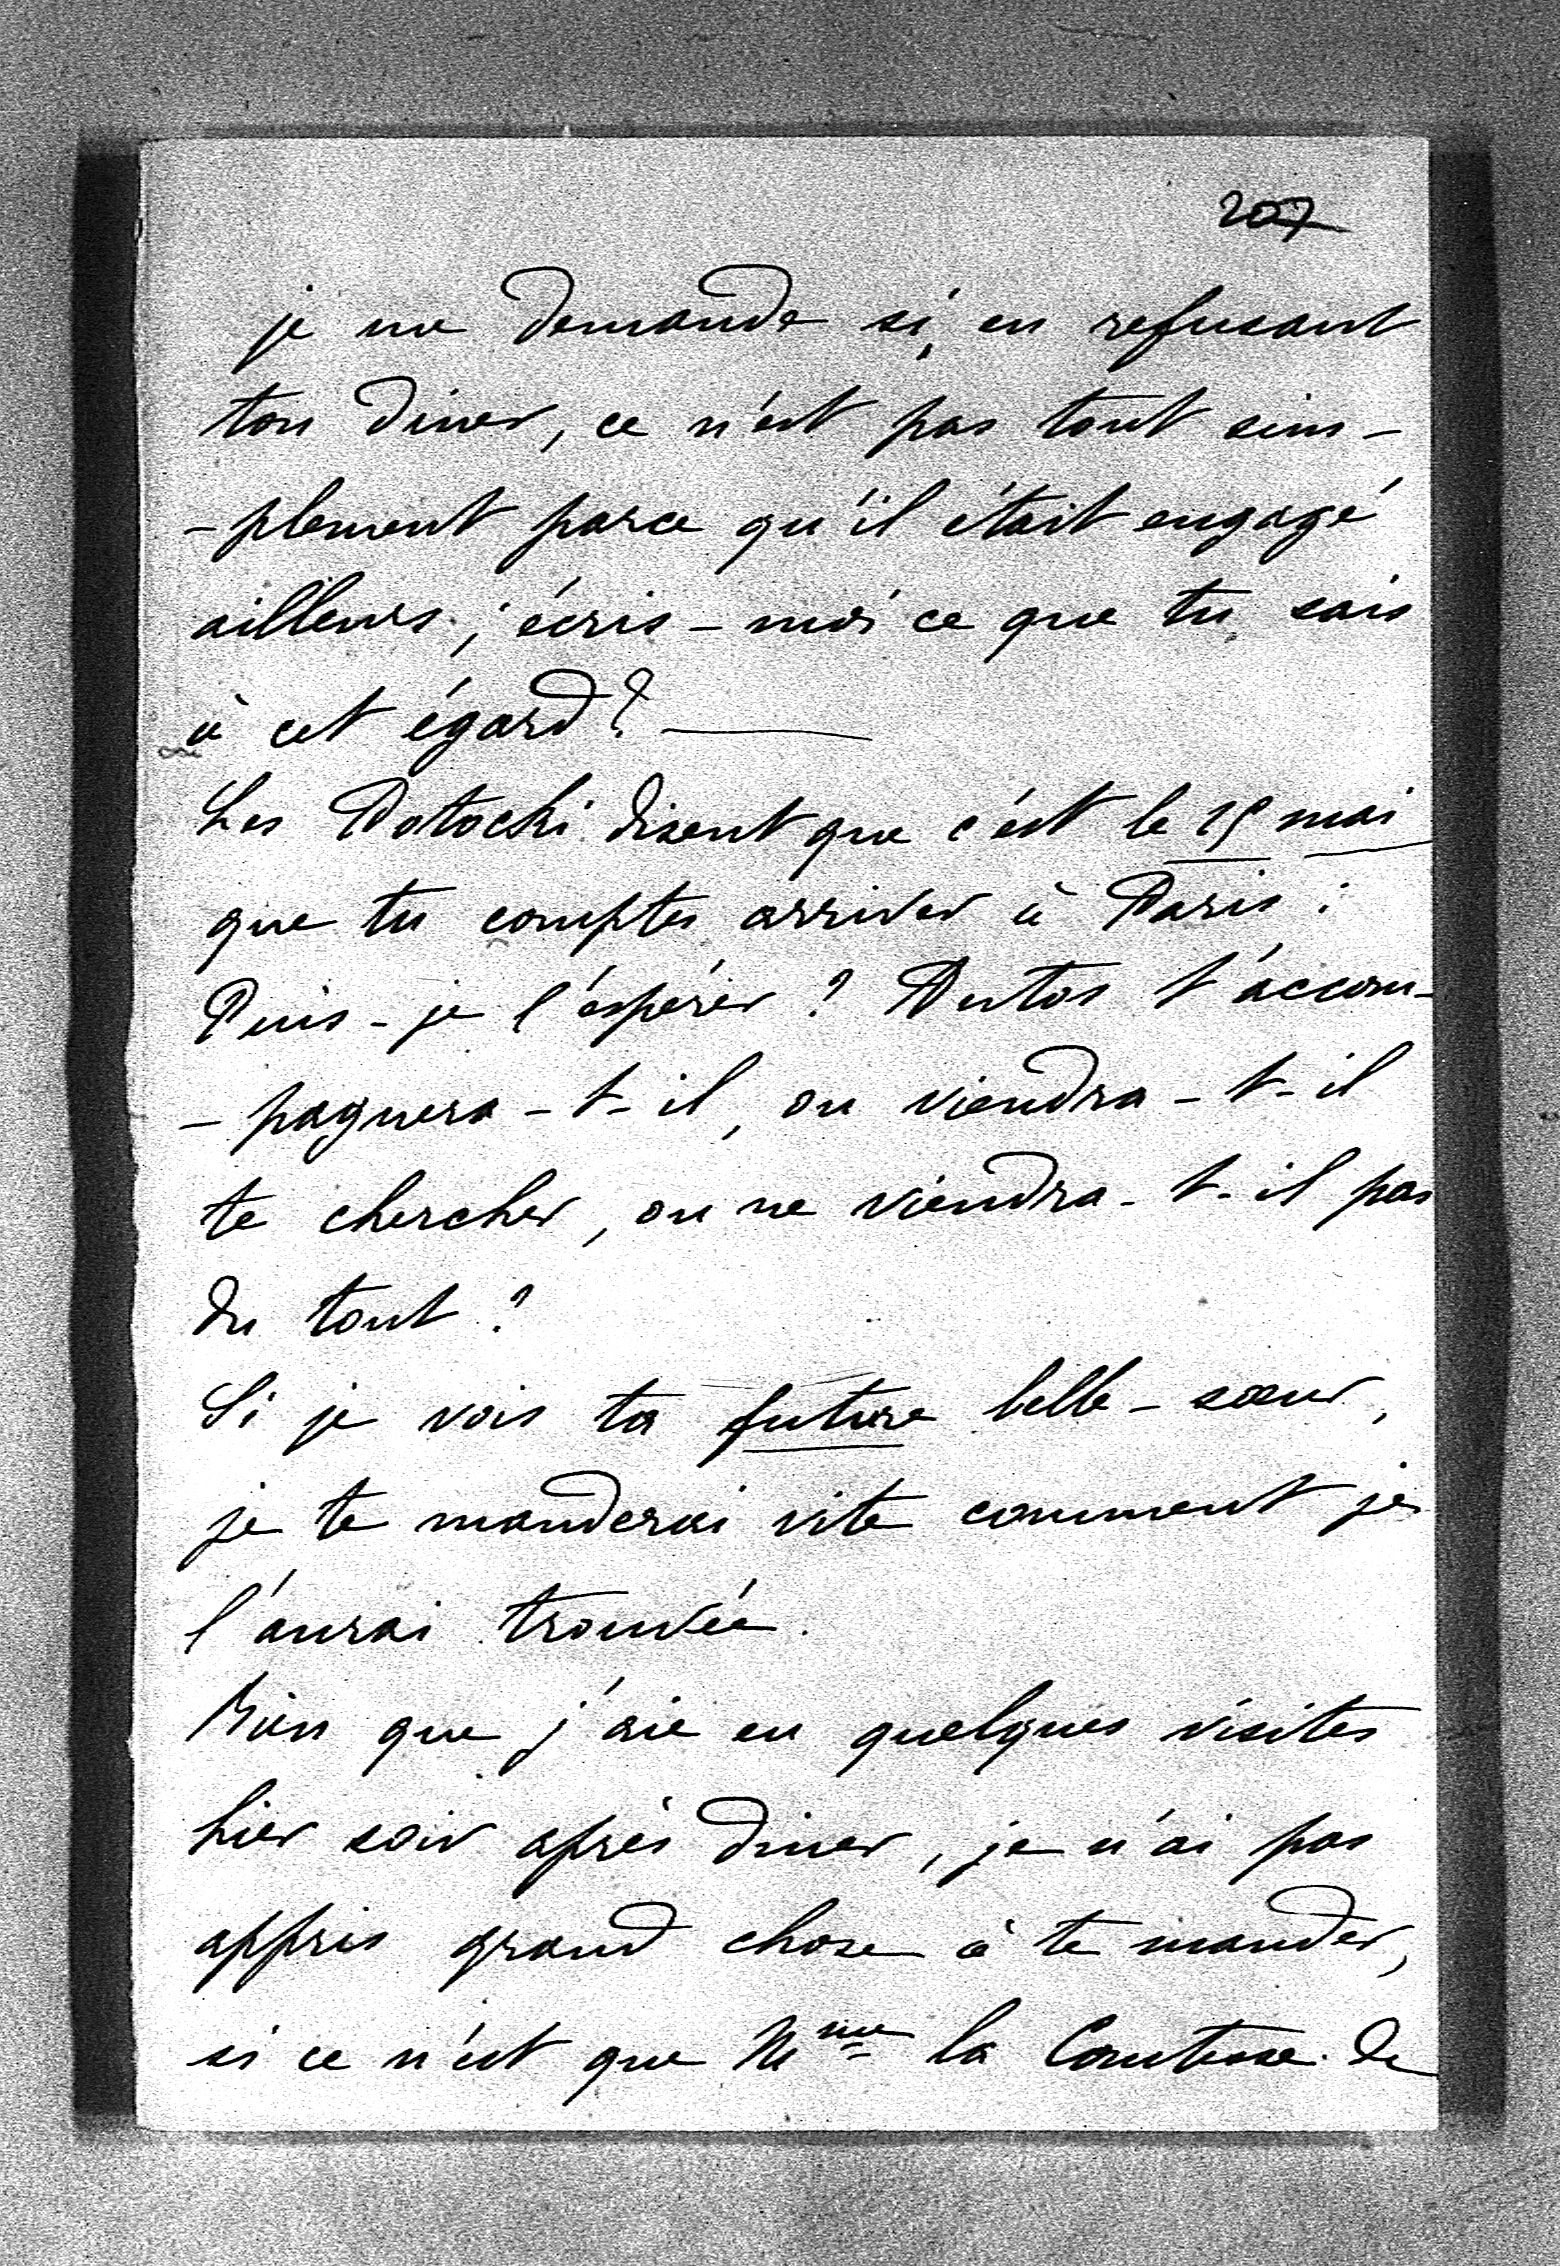 207
je me demande si, en refusant
ton diner, ce n'est pas tout sim-
-plement parce qu'il était engagé
ailleurs; écris-moi ce que tu sais
à cet égard? —
Les Potocki disent que c'est le 15 mai
que tu comptes arriver à Paris:
Puis-je l'espérer? t'accom-
-pagnera-t-il, ou viendra-t-il
te chercher, ou ne viendra-t-il pas
du tout?
Si je vois ta future belle-sœur,
je te manderai vite comment je
l'aurai trouvée.
Bien que j'aie eu quelques visites
hier soir après diner, je n'ai pas
appris grand chose à te mander,
si ce n'est que Mme la Comtesse de